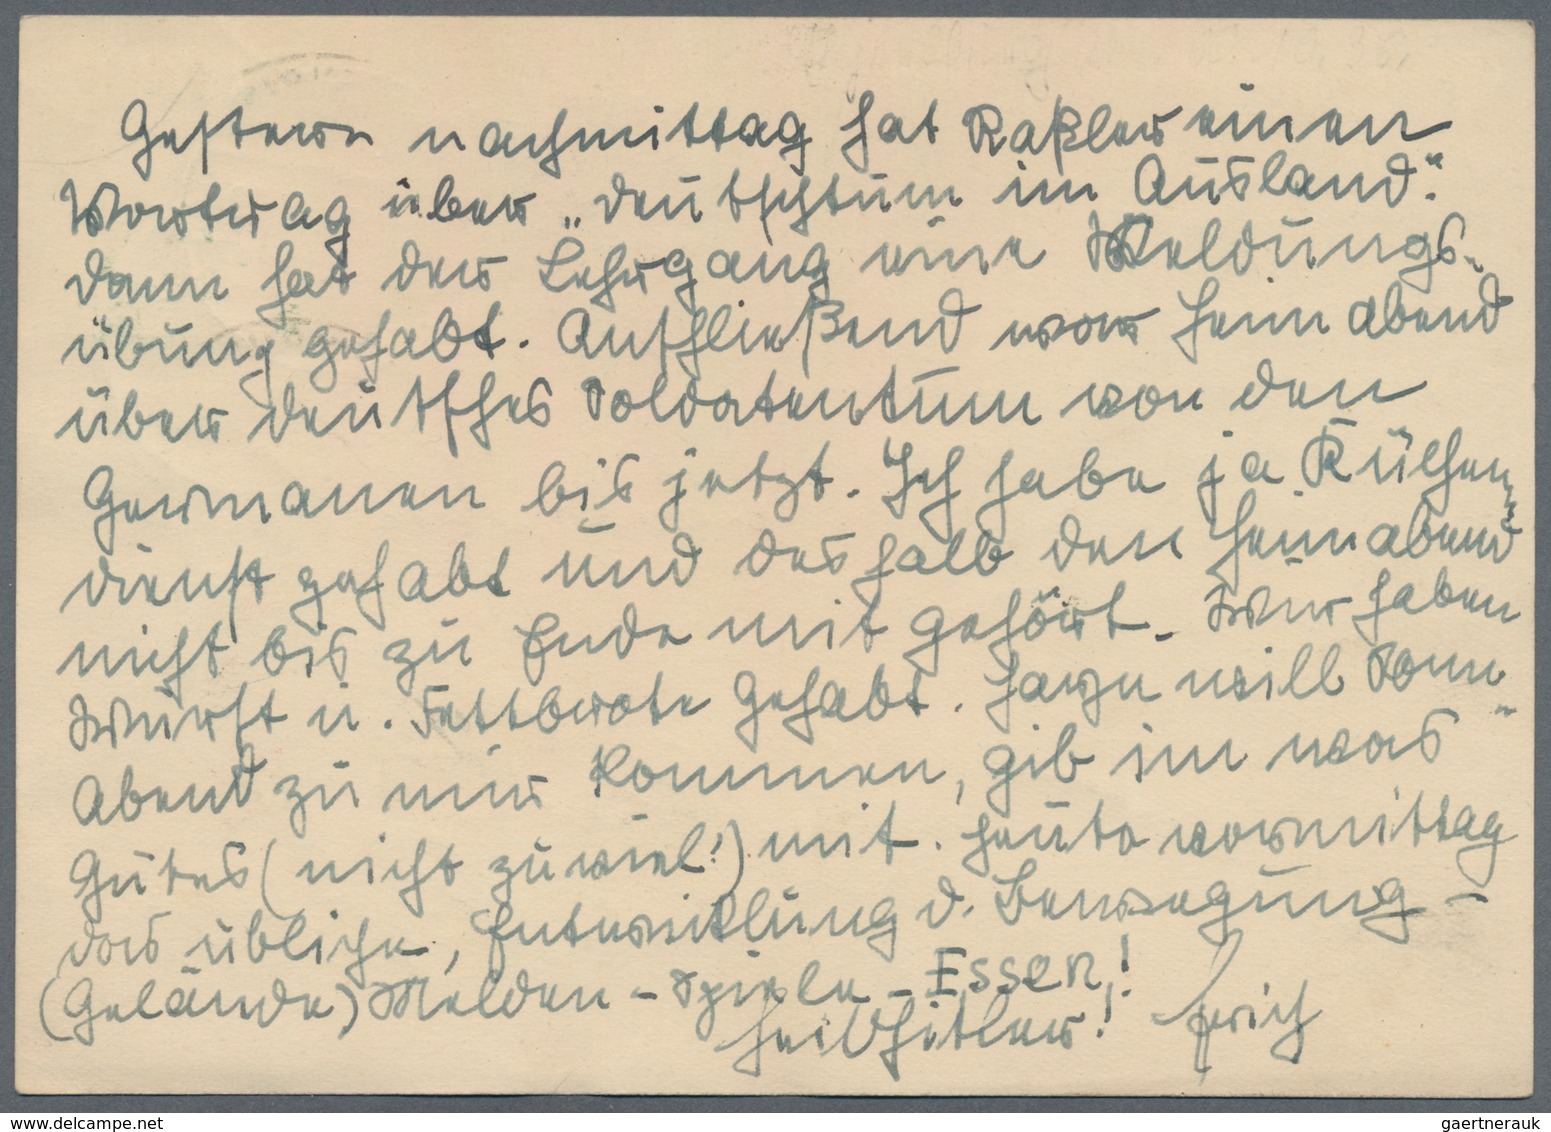 Gestern nachmittag hat Raßler einen
Vortrag über „deutschtum im Ausland".
dann hat der Lehrgang eine Meldungs-
übung gehabt. Anschließend war Heimabend
über deutsches Soldatentum von den
Germanen bis jetzt. Ich habe ja Küchen-
dienst gehabt und deshalb den Heimabend
nicht bis zu Ende mit gehört. Wir haben
Wurst u. Fettbrote gehabt. will Sonn-
Abend zu mir kommen, gib im was
Gutes (nicht zuviel!) mit. Heute vormittag
das übliche, Entwicklung d. Bewegung -
(Gelände) Melden - Spiele - Essen!
Heil Hitler! Erich
gaertnerauk.com